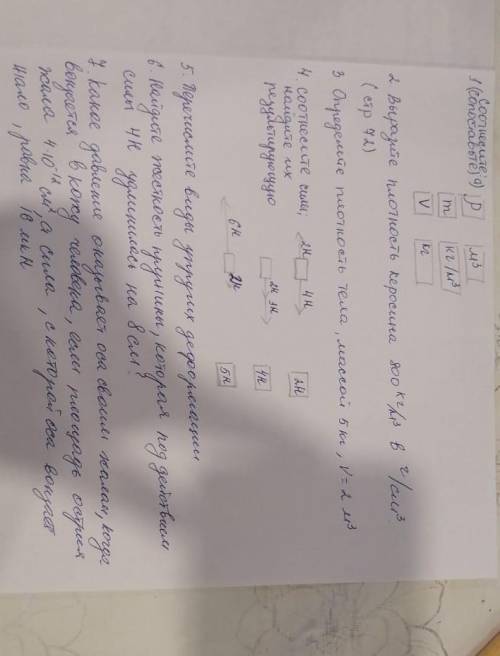 1 Соедините
(сопоставьте)
ρ м³
m кг/м³
V кг
2. Выразите плотность керосина 800 кг/м³ в г/см³.
(стр 42)
3 Определите плотность тела, массой 5 кг, V = 2 м³
4. Соотнесите силы,
найдите их
результирующую
2Н 4Н 2Н
2Н 3Н 4Н
6Н 2Н 5Н
5. Перечислите виды упругих деформации
6. Найдите жесткость пружины, которая под действием
силы 4Н удлинилась на 8 см?
7. Какое давление оказывает оса своим жалом, когда
вонзается в кожу человека, если площадь острия
жала см², а сила, с которой оса вонзает
жало, равна 18 мкН